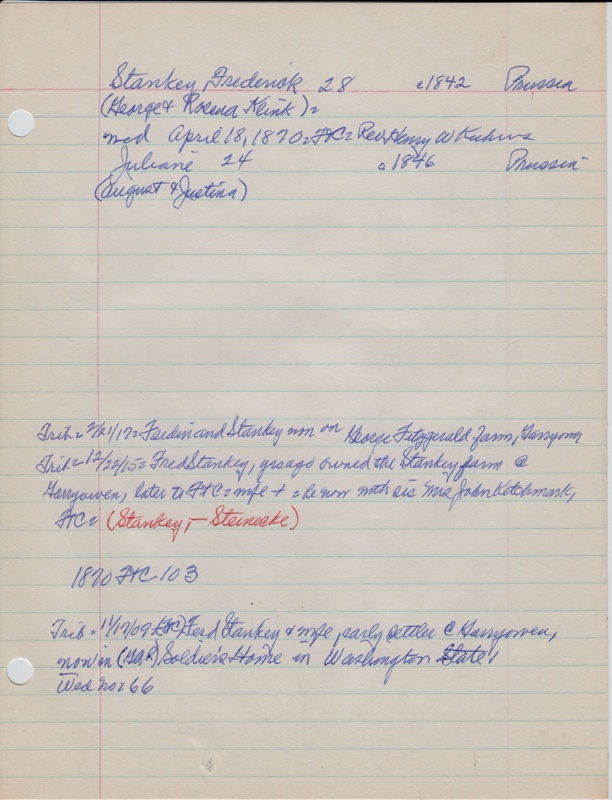 Stankey, Frederick 28 c1842 Prussia
(George & Rosena Klink) =
wed April 18, 1870 = FtC = Rev. Henry W Kuhns
Juliane 24 c1846 Prussia
(August & Justina)
Trib = 2/21/17 = Ferdinand Stankey now on George Fitzgerald Farm, Garryown
Trib = 12/22/15 = Fred Stankey, yrs ago owned the Stankey farm @
Garryowen, later to FtC = wife + = he now with sis Mrs John Ketchmark,
FtC = (Stankey, - Steinecke)
1870 FtC 103
Trib = 11/17/09 = (FtC) Ferd Stankey & wife, early settler @ Garryowen,
now in (GAR) Soldier's Home in Washington State
Wed no = 66